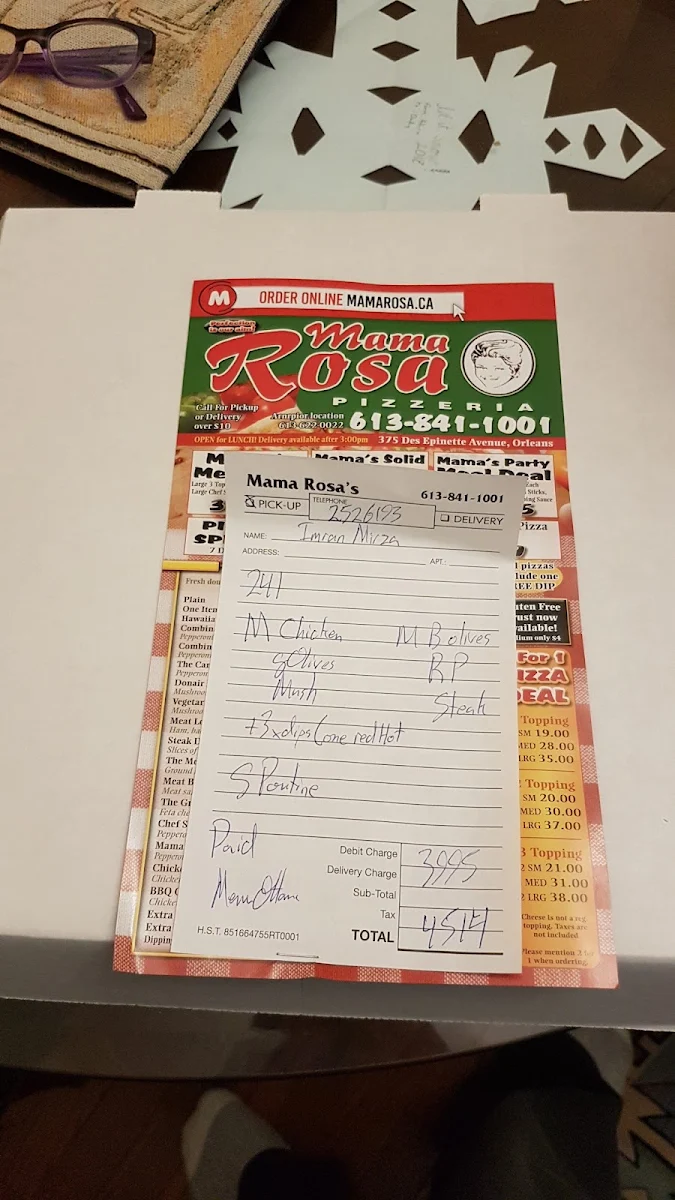 ORDER ONLINE MAMAROSA.CA
Perfection is our aim!
Mama
Rosa
PIZZERIA
Call For Pickup
or Delivery,
over $10
Arnprior location
613-622-0022
613-841-1001
OPEN for LUNCH! Delivery available after 3:00pm 375 Des Epinette Avenue, Orleans
Mama's Solid
Mama's Party
Meal Deal
Large 3 Top
Large Chef S
Mama Rosa's 613-841-1001
PICK-UP TELEPHONE 2526193 DELIVERY
NAME: Imran Mirza
ADDRESS: APT.:
241
M Chicken M B olives
gOlives RP
Mush Steak
+3xdips (one redHot
S Poutine
Paid
Debit Charge 3995
Delivery Charge
Sub-Total
Tax
TOTAL 4514
H.S.T. 851664755RT0001
Fresh dou
Plain
One Item
Hawaiia
Combin
Pepperon
Combin
Pepperon
The Car
Pepperon
Donair
Mushroo
Vegetar
Mushroo
Meat Lo
Ham, ba
Steak D
Slices of
The Me
Ground
Meat B
Meat sa
The Gr
Feta che
Chef S
Peppero
Mama
Peppero
Chick
Chicke
BBQ C
Chicke
Extra
Extra
Dippin
pizzas
lude one
REE DIP
uten Free
rust now
vailable!
ium only $4
For 1
IZZA
DEAL
Topping
SM 19.00
MED 28.00
LRG 35.00
Topping
SM 20.00
MED 30.00
LRG 37.00
3 Topping
2 SM 21.00
MED 31.00
2 LRG 38.00
Cheese is not a reg.
topping. Taxes are
not included.
Please mention 2 for
1 when ordering.